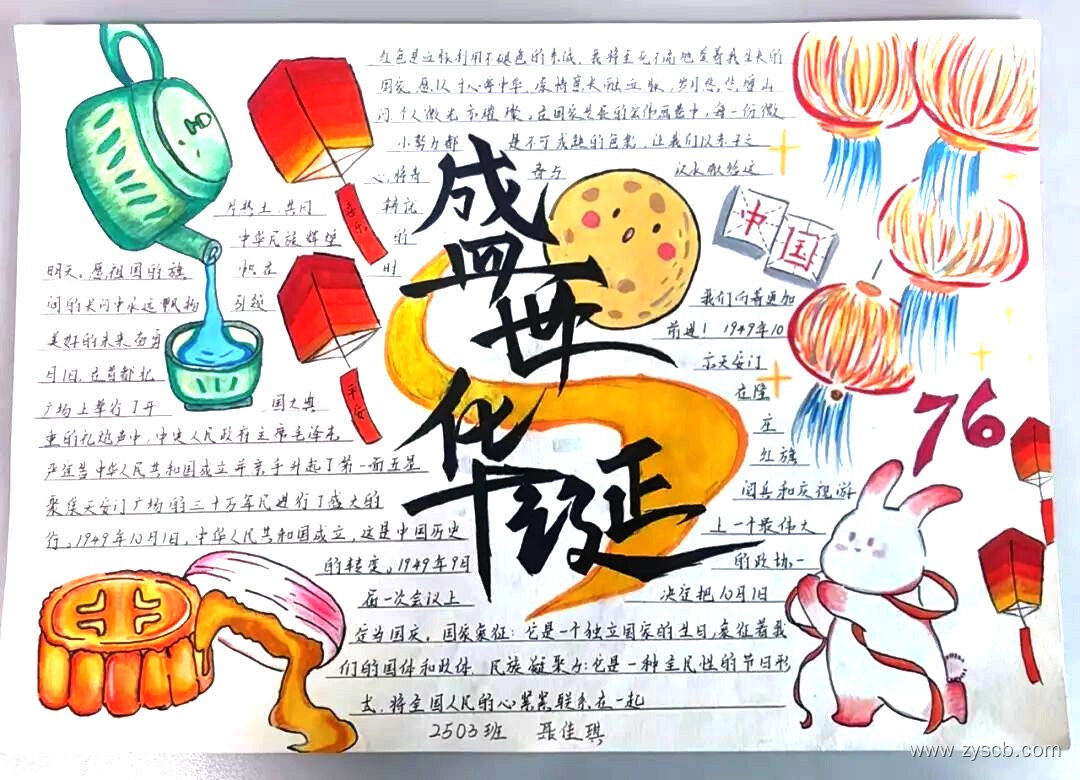 红色是这张利用不褪色的东流,我将至死不渝地爱着我生长的
国家,愿以寸心寄中华,
间,个人微光亦璀璨,在国家发展的宏伟画卷中,每一份微
小努力都 是不可或缺的色彩,让我们以赤子之
心,将青 春与
片热土,共同
中华民族辉煌 的
明天,愿祖国的旗 帜在 时
间的长河中永远飘扬 引领
我们向着更加
美好的未来奋勇
前进!1949年10
月1日,在首都北
京天安门
广场上举行了开 国大典
在隆
重的礼炮声中,中央人民政府主席毛泽东
庄
严宣告中华人民共和国成立并亲手升起了第一面五星
红旗
聚集天安门广场的三十万军民进行了盛大的
阅兵和庆祝游
行。1949年10月1日,中华人民共和国成立,这是中国历史
上一个最伟大
的转变。1949年9月
的政协一
届一次会议上
决定把10月1日
定为国庆。国家象征:它是一个独立国家的生日,象征着我
们的国体和政体。民族凝聚力:它是一种全民性的节日形
式,将全国人民的心紧紧联系在一起
盛世华诞
中国
76
平安
2503班 聂佳琪
www.zyscb.com